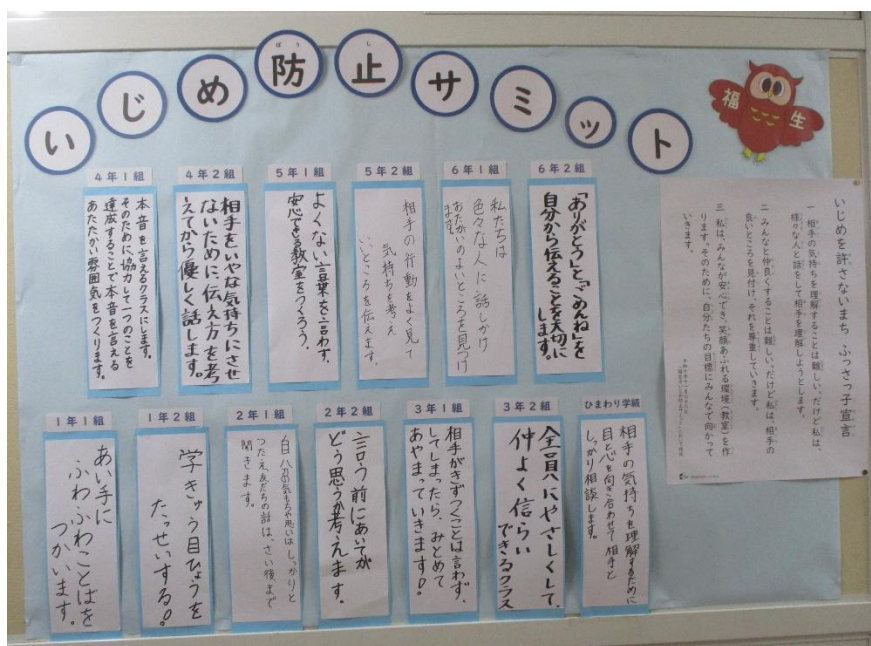 いじめ防止サミット
ぼう
し
福
生
4年1組
本音を言えるクラスにします。
そのために協力して一つのことを
達成することで、本音を言える
あたたかい雰囲気をつくります。
4年2組
相手をいやな気持ちにさせ
ないために、伝え方を考
えてから優しく話します。
5年1組
よくない言葉を言わず、
安心できる教室をつくろう。
5年2組
相手の行動をよく見て
気持ちを考え
いいところを伝えます。
6年1組
私たちは
色々な人に話しかけ
おたがいのよいところを見つけ
ます。
6年2組
「ありがとう」と、「ごめんね」を
自分から伝えることを大切に
します。
いじめを許さないまち ふっさっ子宣言
一 相手の気持ちを理解することは難しい。だけど私は、
様々な人と話をして相手を理解しようとします。
二 みんなと仲良くすることは難しい。だけど私は、相手の
良いところを見付け、それを尊重していきます。
三 私は、みんなが安心でき、笑顔あふれる環境(教室)を作
ります。そのために、自分たちの目標にみんなで向かって
いきます。
1年1組
あい手に
ふわふわことばを
つかいます。
1年2組
学きゅう目ひょうを
たっせいする!
2年1組
自分の気もちや思いはしっかりと
つたえ、友だちの話は、さい後まで
聞きます。
2年2組
言う前にあいてが
どう思うか考えます。
3年1組
相手がきずつくことは言わず、
してしまったら、みとめて
あやまっていきます!
3年2組
全員にやさしくして、
仲よく信らい
できるクラス
ひまわり学級
相手の気持ちを理解するために
目と心を向き合わせて相手と
しっかり相談します。